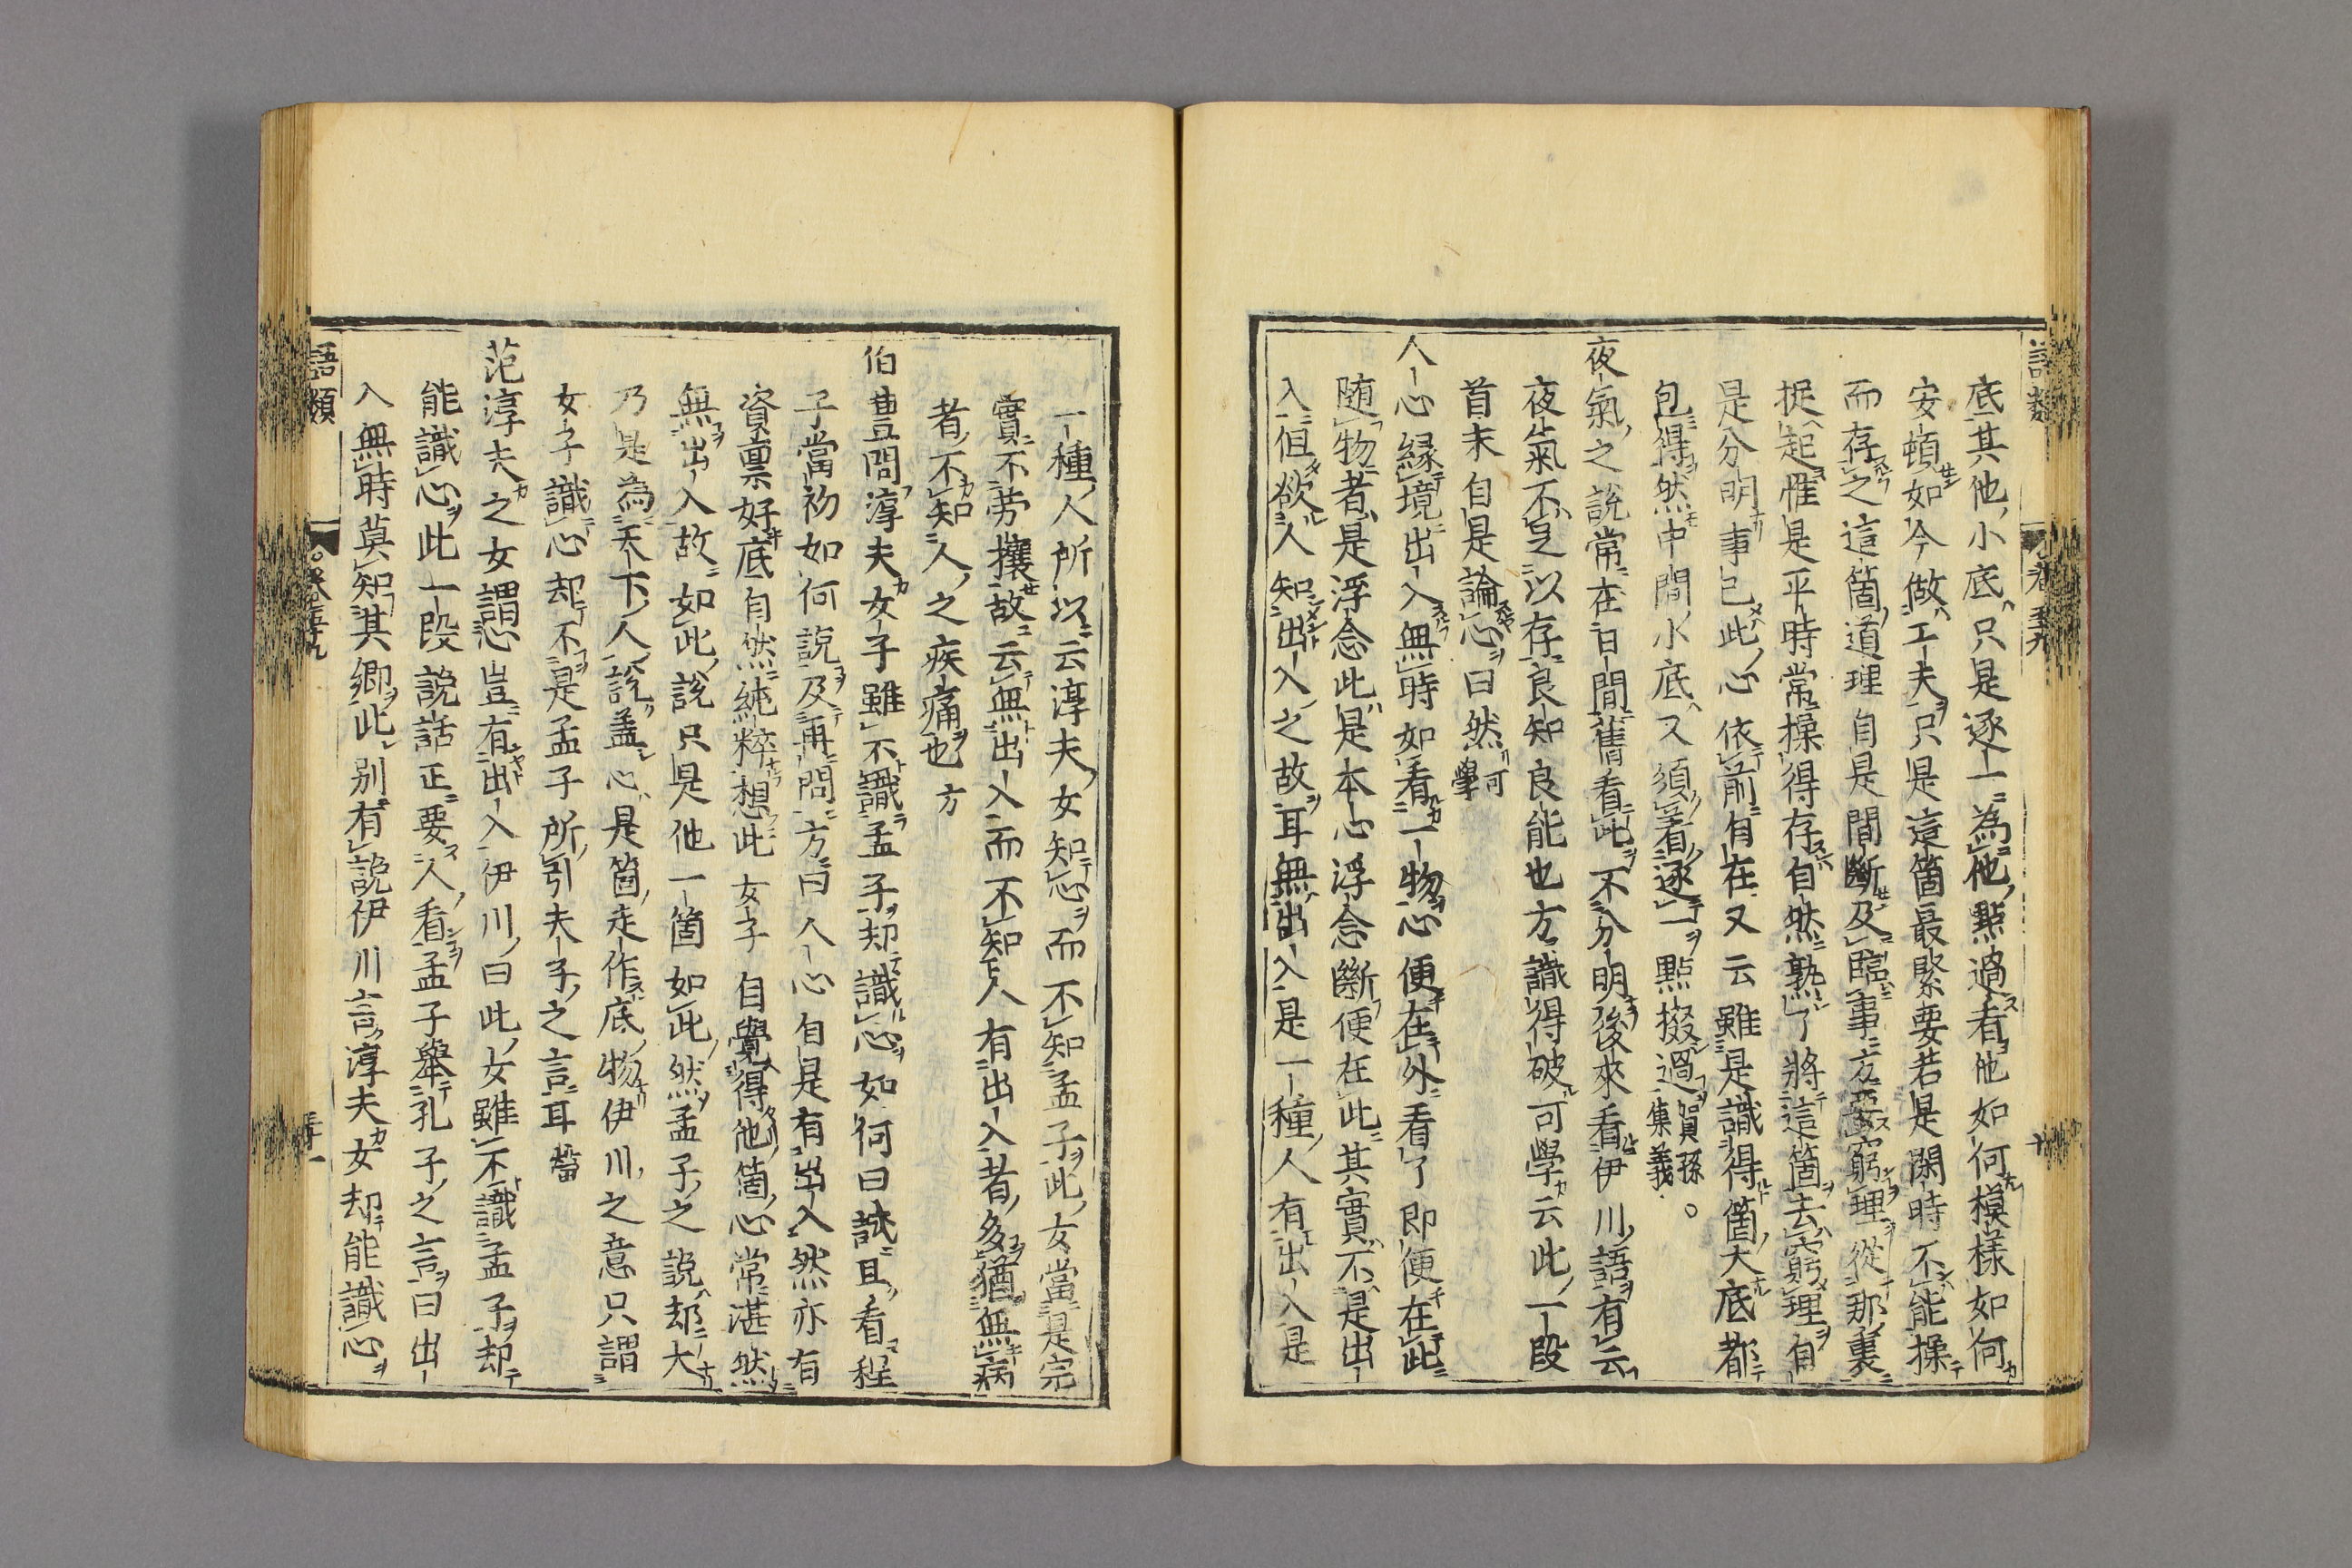 底其他小底只是逐一為他點過看他如何模樣如何
安頓如今做工夫只是這箇最緊要若是閑時不能操
而存之這箇道理自是間斷及臨事方要窮理從那裏
捉起惟是平時常操得存自然熟了將這箇去窮理自
是分明事已此心依前自在又云雖是識得箇大底都
包得然中間小底又須着逐一點掇過賀孫集義。
夜氣之說常在日間舊看此不分明後來看伊川語有云
夜氣不足以存良知良能也方識得破可學云此一段
首末自是論心曰然可學
人心緣境出入無時如看一物心便在外看了即便在此
随物者是浮念此是本心浮念斷便在此其實不是出
入但欲人知出入之故耳無出入是一種人有出入是
一種人所以云淳夫女知心而不知孟子此女當是完
實不勞攘故云無出入而不知人有出入者多猶無病
者不知人之疾痛也方
伯豊問淳夫女子雖不識孟子却識心如何曰試且看程
子當初如何說及再問方曰人心自是有出入然亦有
資稟好底自然純粹想此女子自覺得他箇心常湛然
無出入故如此說只是他一箇如此然孟子之說却大
乃是為天下人說盖心是箇走作底物伊川之意只謂
女子識心却不是孟子所引夫子之言耳㽦
范淳夫之女謂心豈有出入伊川曰此女雖不識孟子却
能識心此一段說話正要人看孟子舉孔子之言曰出
入無時莫知其鄉此别有說伊川言淳夫女却能識心
語類